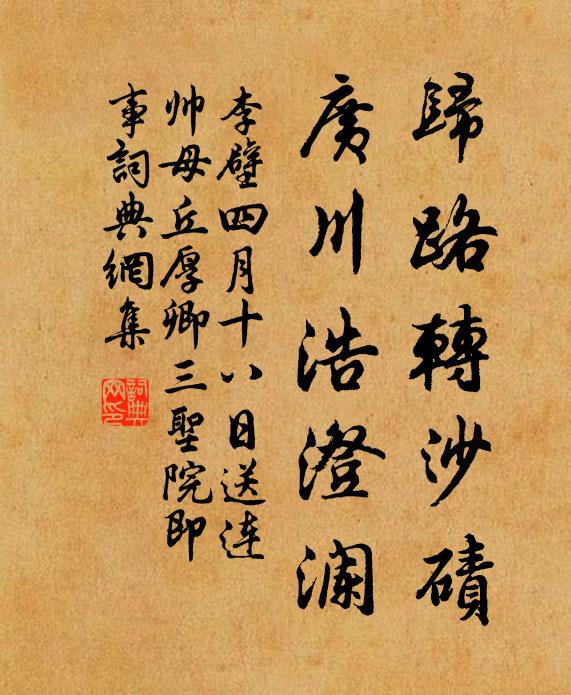 歸路轉沙磧
廣川浩澄瀾
李壁四月十八日送连
帅母丘厚卿三聖院即
事詞典網集
詞典网印